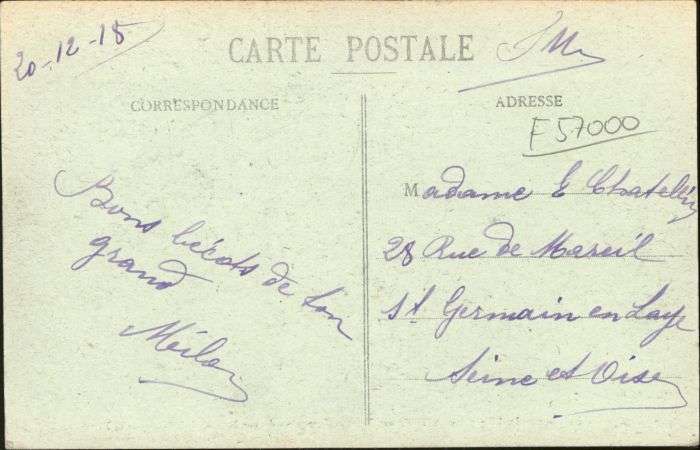 20-12-18
CARTE POSTALE
F.M.
CORRESPONDANCE
ADRESSE
F57000
Bons bécots de ton
grand
Madame E
28 Rue de Mareil
St Germain en Laye
Seine et Oise